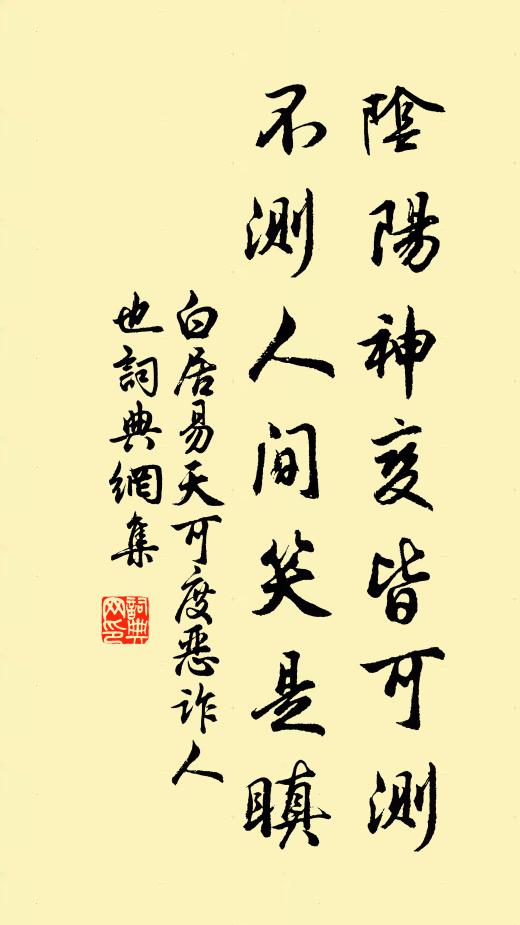 陰陽神变皆可測
不測人間笑是瞋
白居易天可度惡诈人
也詞典網集
詞典
网印